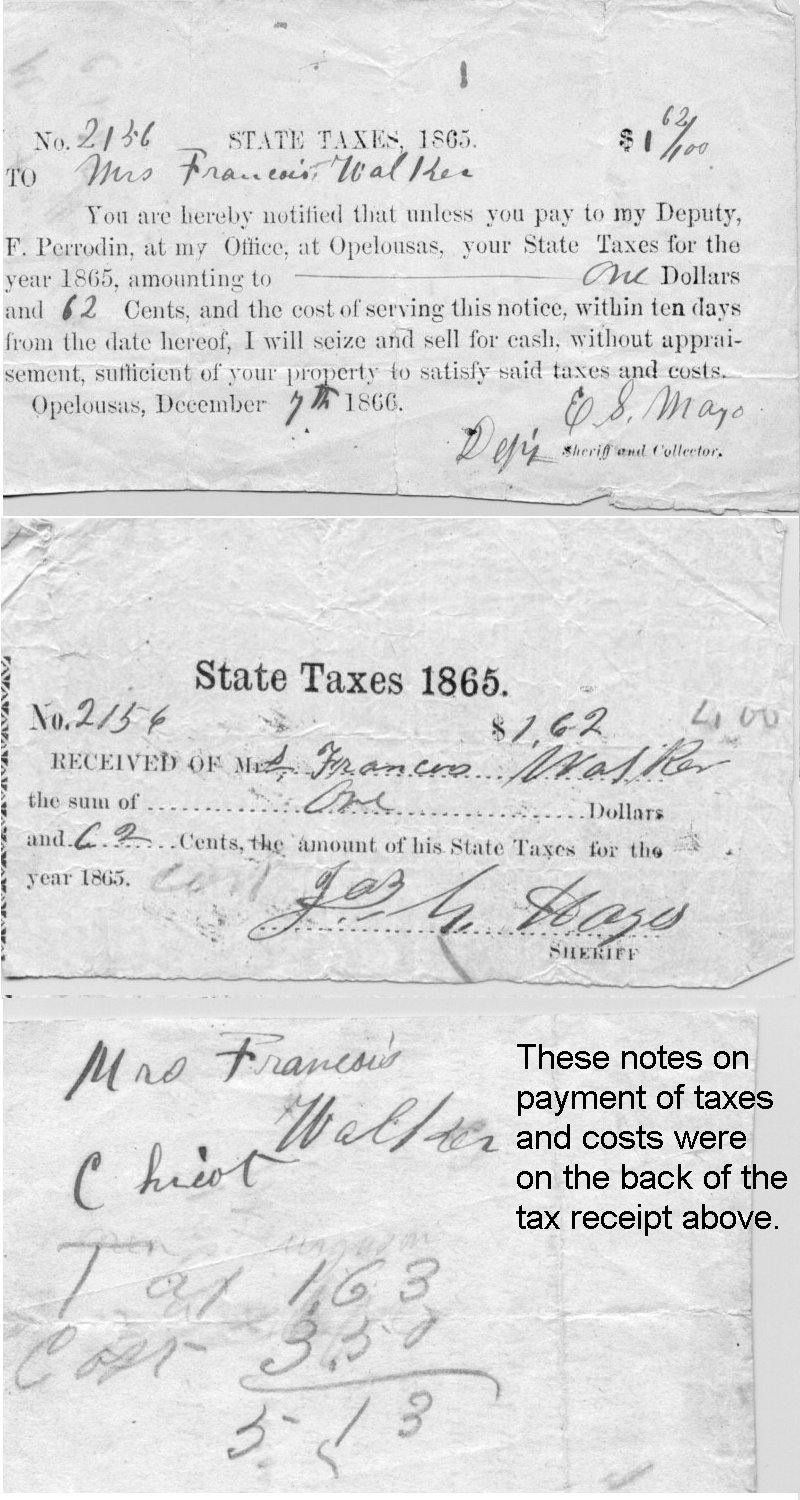 No. 2156 STATE TAXES, 1865. $1 62/100
TO Mrs Francois Walker
You are hereby notified that unless you pay to my Deputy,
F. Perrodin, at my Office, at Opelousas, your State Taxes for the
year 1865, amounting to One Dollars
and 62 Cents, and the cost of serving this notice, within ten days
from the date hereof, I will seize and sell for cash, without apprai-
sement, sufficient of your property to satisfy said taxes and costs.
Opelousas, December 7th 1866.
E. S. Mayo
Dept Sheriff and Collector.
State Taxes 1865.
No. 2156 $1,62 4,00
RECEIVED OF Mrs. Francois Walker
the sum of One Dollars
and 62 Cents, the amount of his State Taxes for the
year 1865. cost
Jas G. Hayes
SHERIFF
Mrs Francois
Walker
Chicot
Tax 1,63
Cost 3.50
5,13
These notes on
payment of taxes
and costs were
on the back of the
tax receipt above.